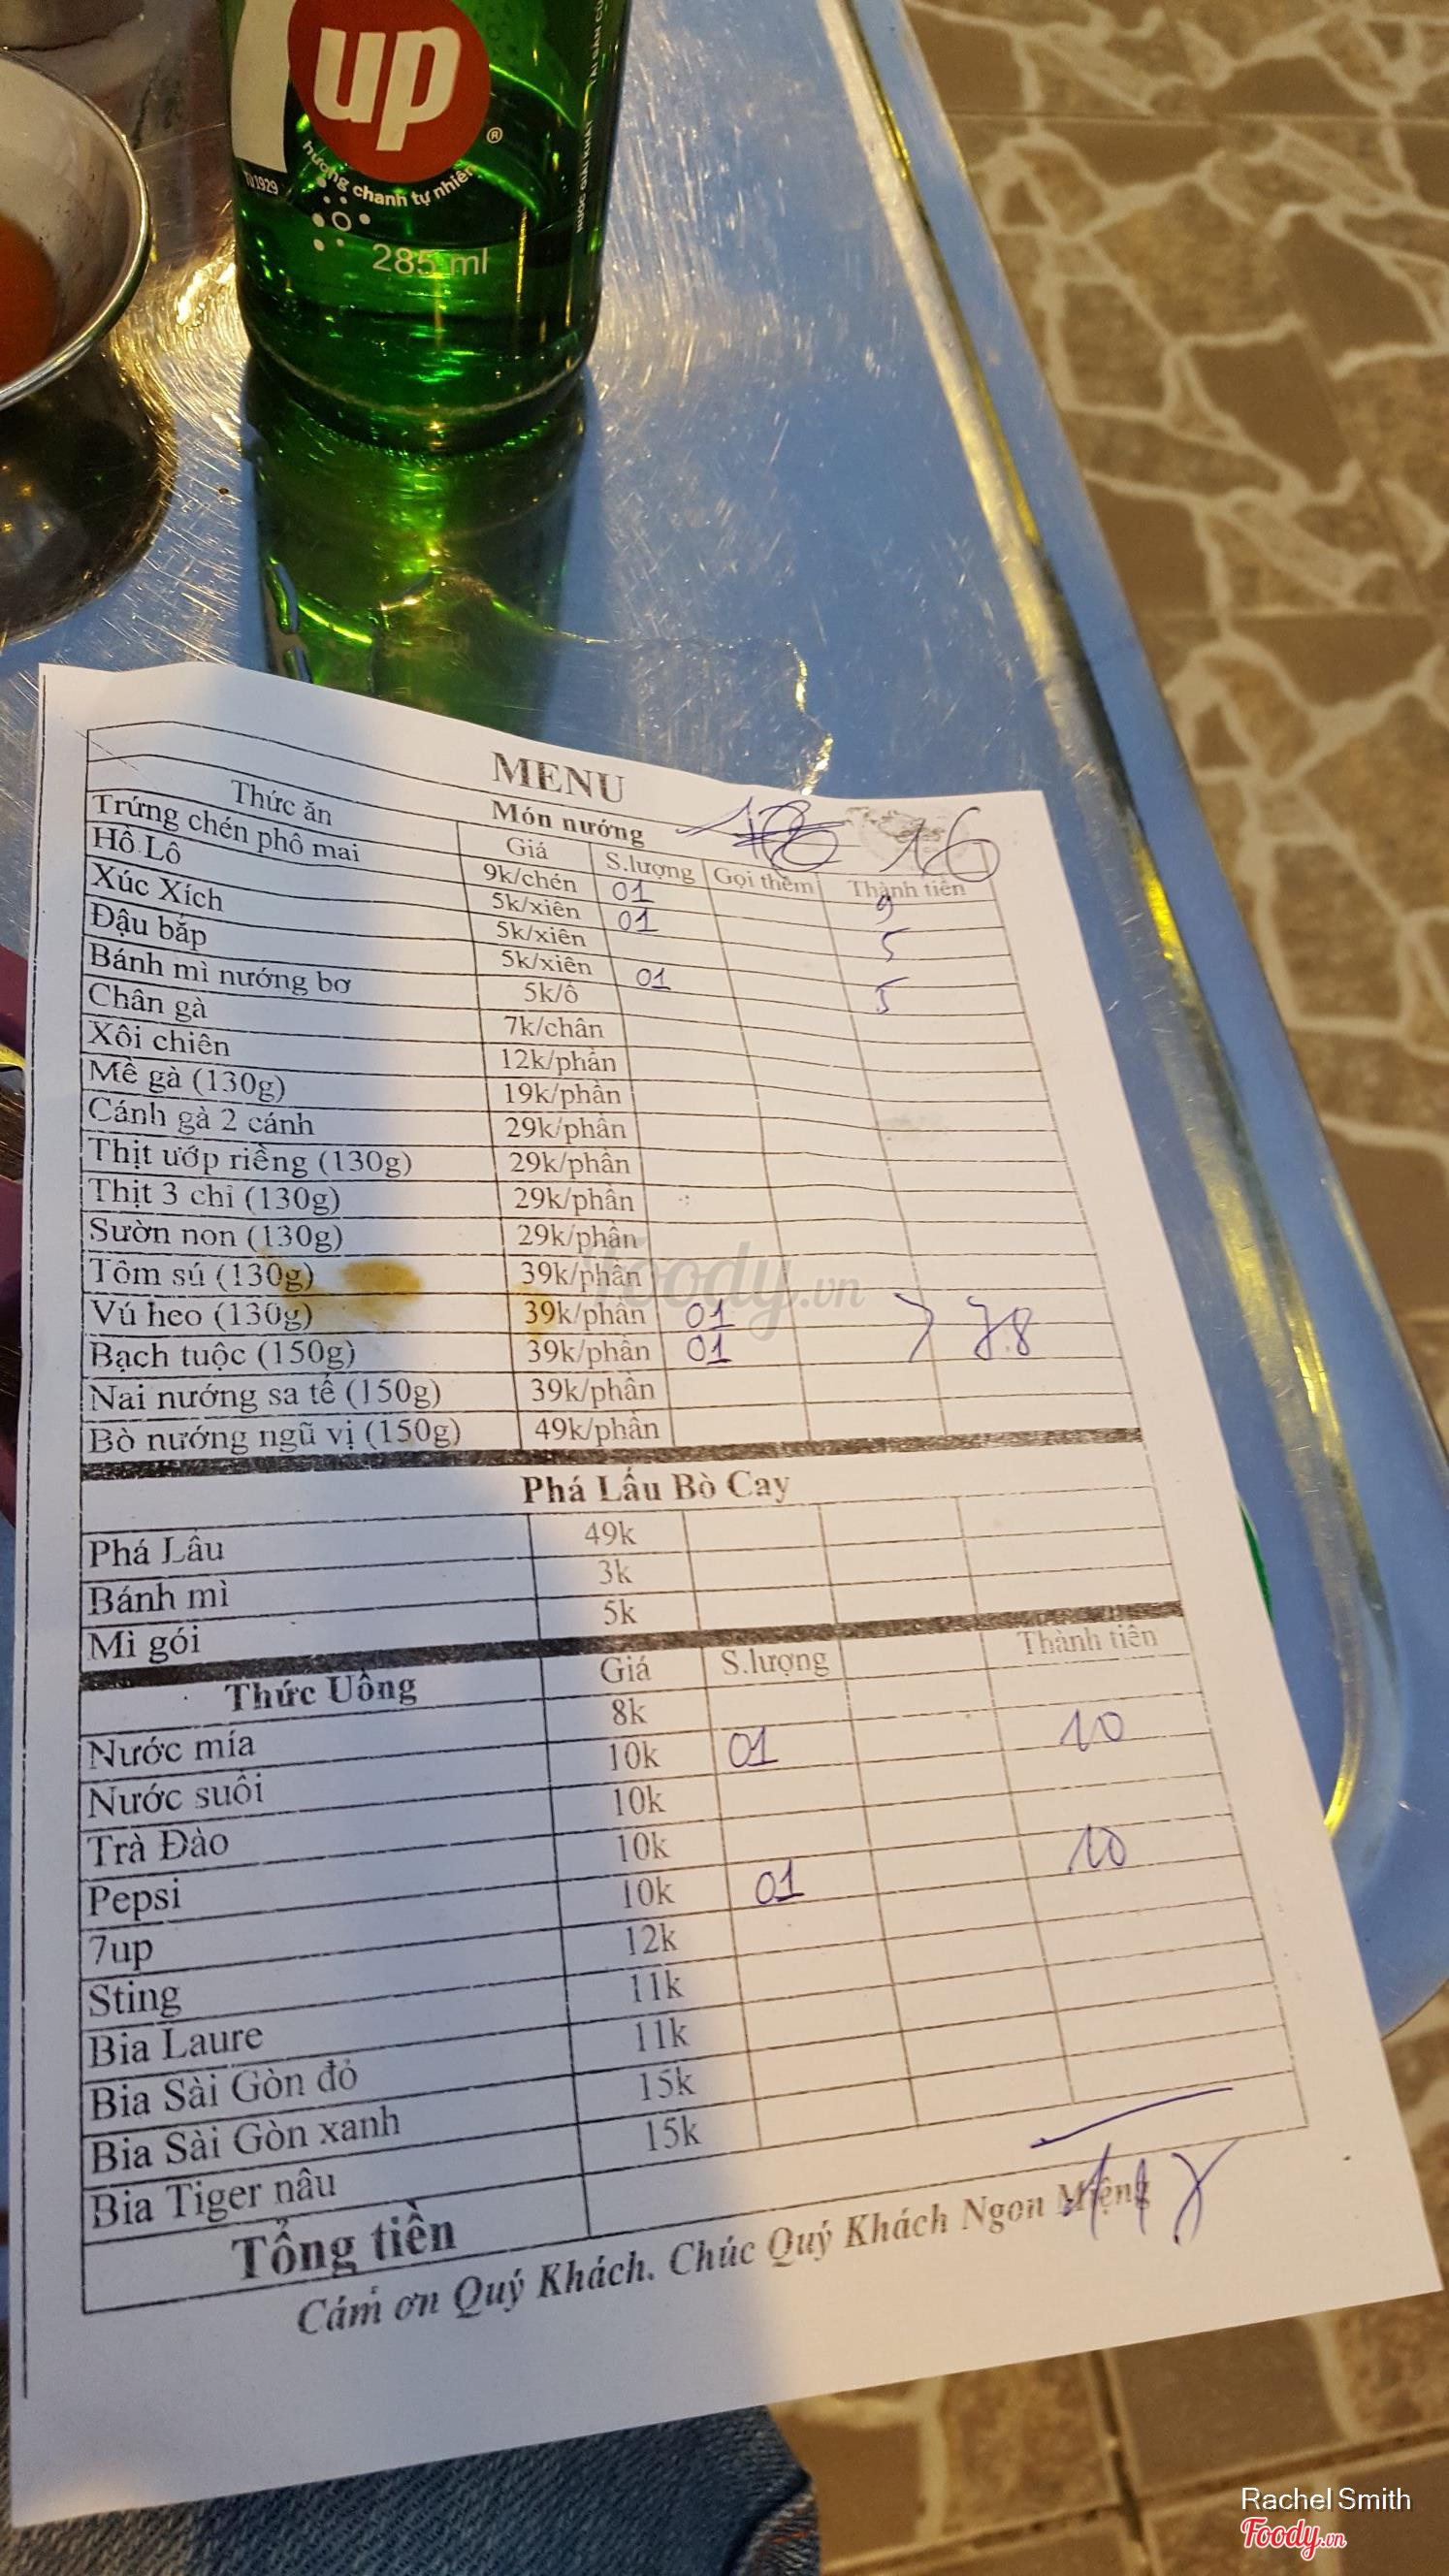 7up
®
TỪ 1929
hương chanh tự nhiên
285 ml
MENU
Món nướng 16
Thức ăn Giá S.lượng Gọi thêm Thành tiền
Trứng chén phô mai 9k/chén 01 9
Hồ Lô 5k/xiên 01 5
Xúc Xích 5k/xiên
Đậu bắp 5k/xiên 01 5
Bánh mì nướng bơ 5k/ổ
Chân gà 7k/chân
Xôi chiên 12k/phần
Mề gà (130g) 19k/phần
Cánh gà 2 cánh 29k/phần
Thịt ướp riềng (130g) 29k/phần
Thịt 3 chỉ (130g) 29k/phần
Sườn non (130g) 29k/phần
Tôm sú (130g) 39k/phần
Vú heo (130g) 39k/phần 01 78
Bạch tuộc (150g) 39k/phần 01
Nai nướng sa tế (150g) 39k/phần
Bò nướng ngũ vị (150g) 49k/phần
Phá Lấu Bò Cay
Phá Lấu 49k
Bánh mì 3k
Mì gói 5k
Thức Uống Giá S.lượng Thành tiền
Nước mía 8k
Nước suối 10k 01 10
Trà Đào 10k
Pepsi 10k
7up 10k 01 10
Sting 12k
Bia Laure 11k
Bia Sài Gòn đỏ 11k
Bia Sài Gòn xanh 15k
Bia Tiger nâu 15k
Tổng tiền 117
Cám ơn Quý Khách. Chúc Quý Khách Ngon Miệng
foody.vn
Rachel Smith
Foody.vn